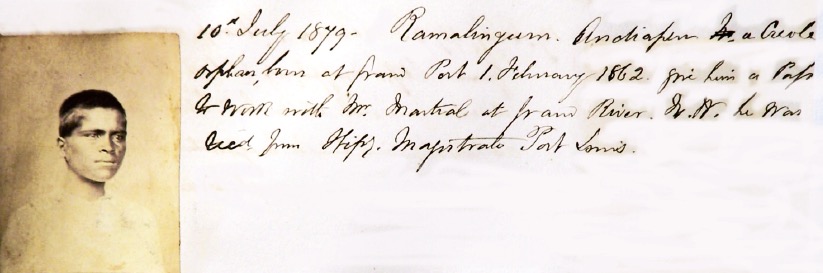 10th July 1879 - Ramalingum. Andiapen a Creole
orphan, born at Grand Port 1. February 1862. give him a Pass
to work with Mr. Martial at Grand River. N. W. he was
recd. from Stip. Magistrate Port Louis.